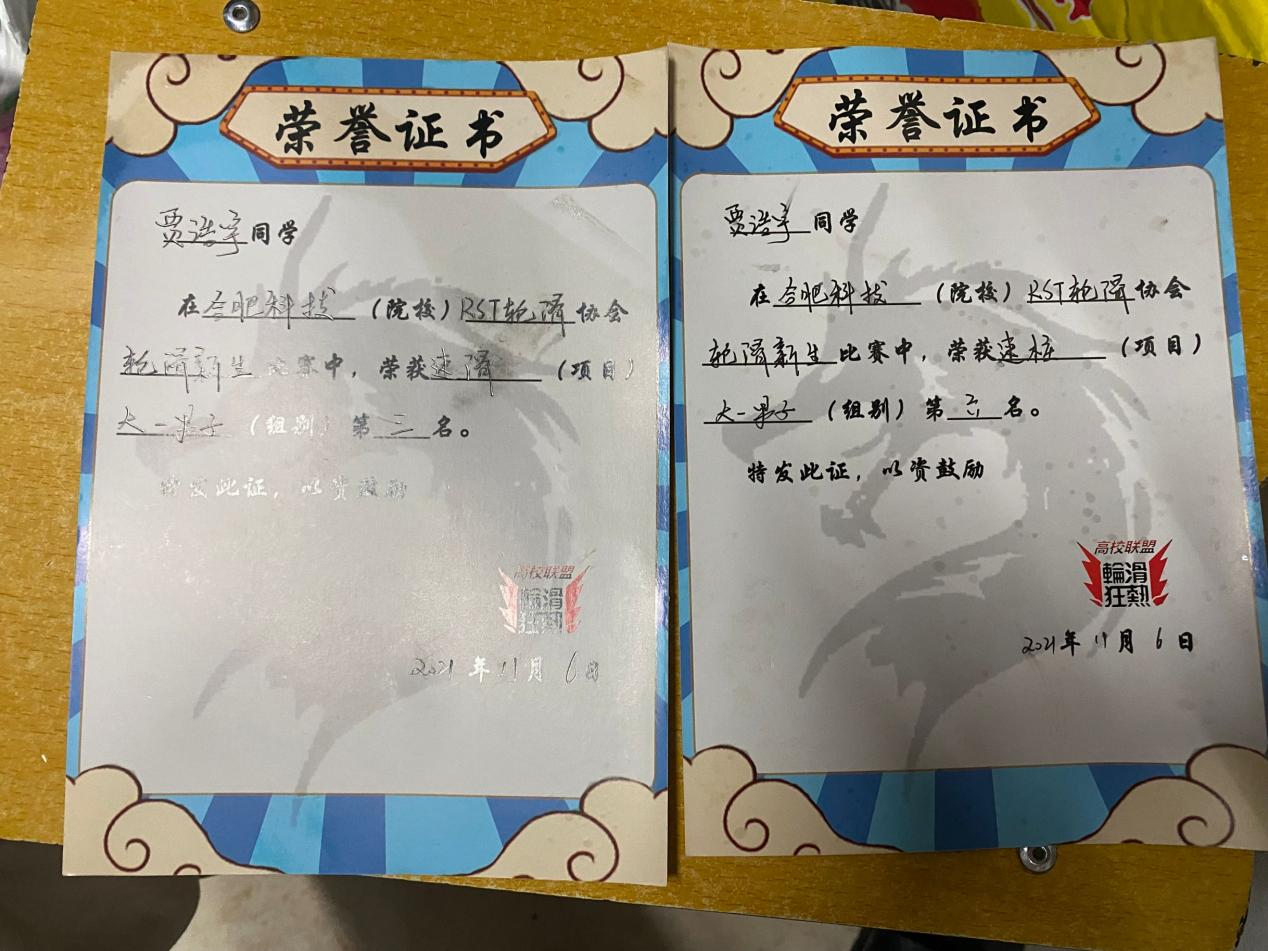 荣誉证书
贾浩宇同学
在合肥科技(院校)RST轮滑协会
轮滑新生比赛中,荣获速滑(项目)
大一男子(组别)第三名。
特发此证,以资鼓励
高校联盟
輪滑
狂熱
2021年11月6日
荣誉证书
贾浩宇同学
在合肥科技(院校)RST轮滑协会
轮滑新生比赛中,荣获速桩(项目)
大一男子(组别)第六名。
特发此证,以资鼓励
高校联盟
輪滑
狂熱
2021年11月6日